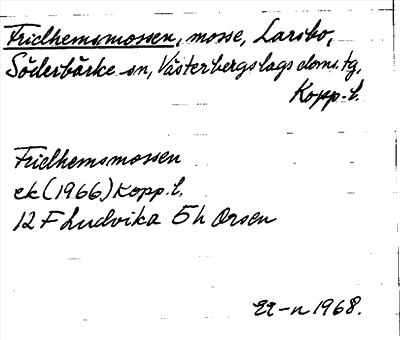 Fridhemsmossen, mosse, Larsbo,
Söderbärke sn, Västerbergslags doms. tg,
Kopp. l.
Fridhemsmossen
ek (1966) Kopp. l.
12 F Ludvika 5 h Orsen
1968.